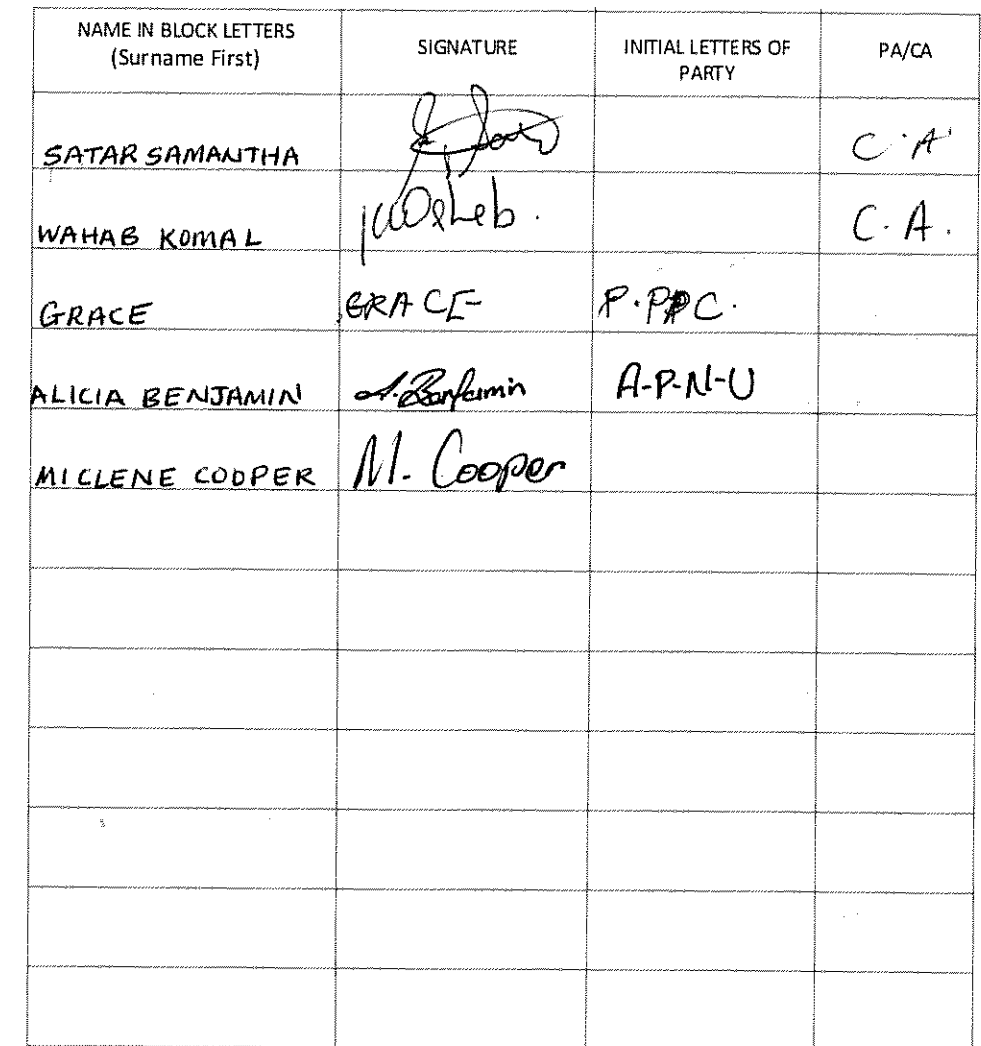 NAME IN BLOCK LETTERS
(Surname First)
SIGNATURE
INITIAL LETTERS OF
PARTY
PA/CA
SATAR SAMANTHA
C.A
WAHAB KOMAL
C.A.
GRACE GRACE P.PPC.
ALICIA BENJAMIN A.Benjamin A-P-N-U
MICLENE COOPER M. Cooper